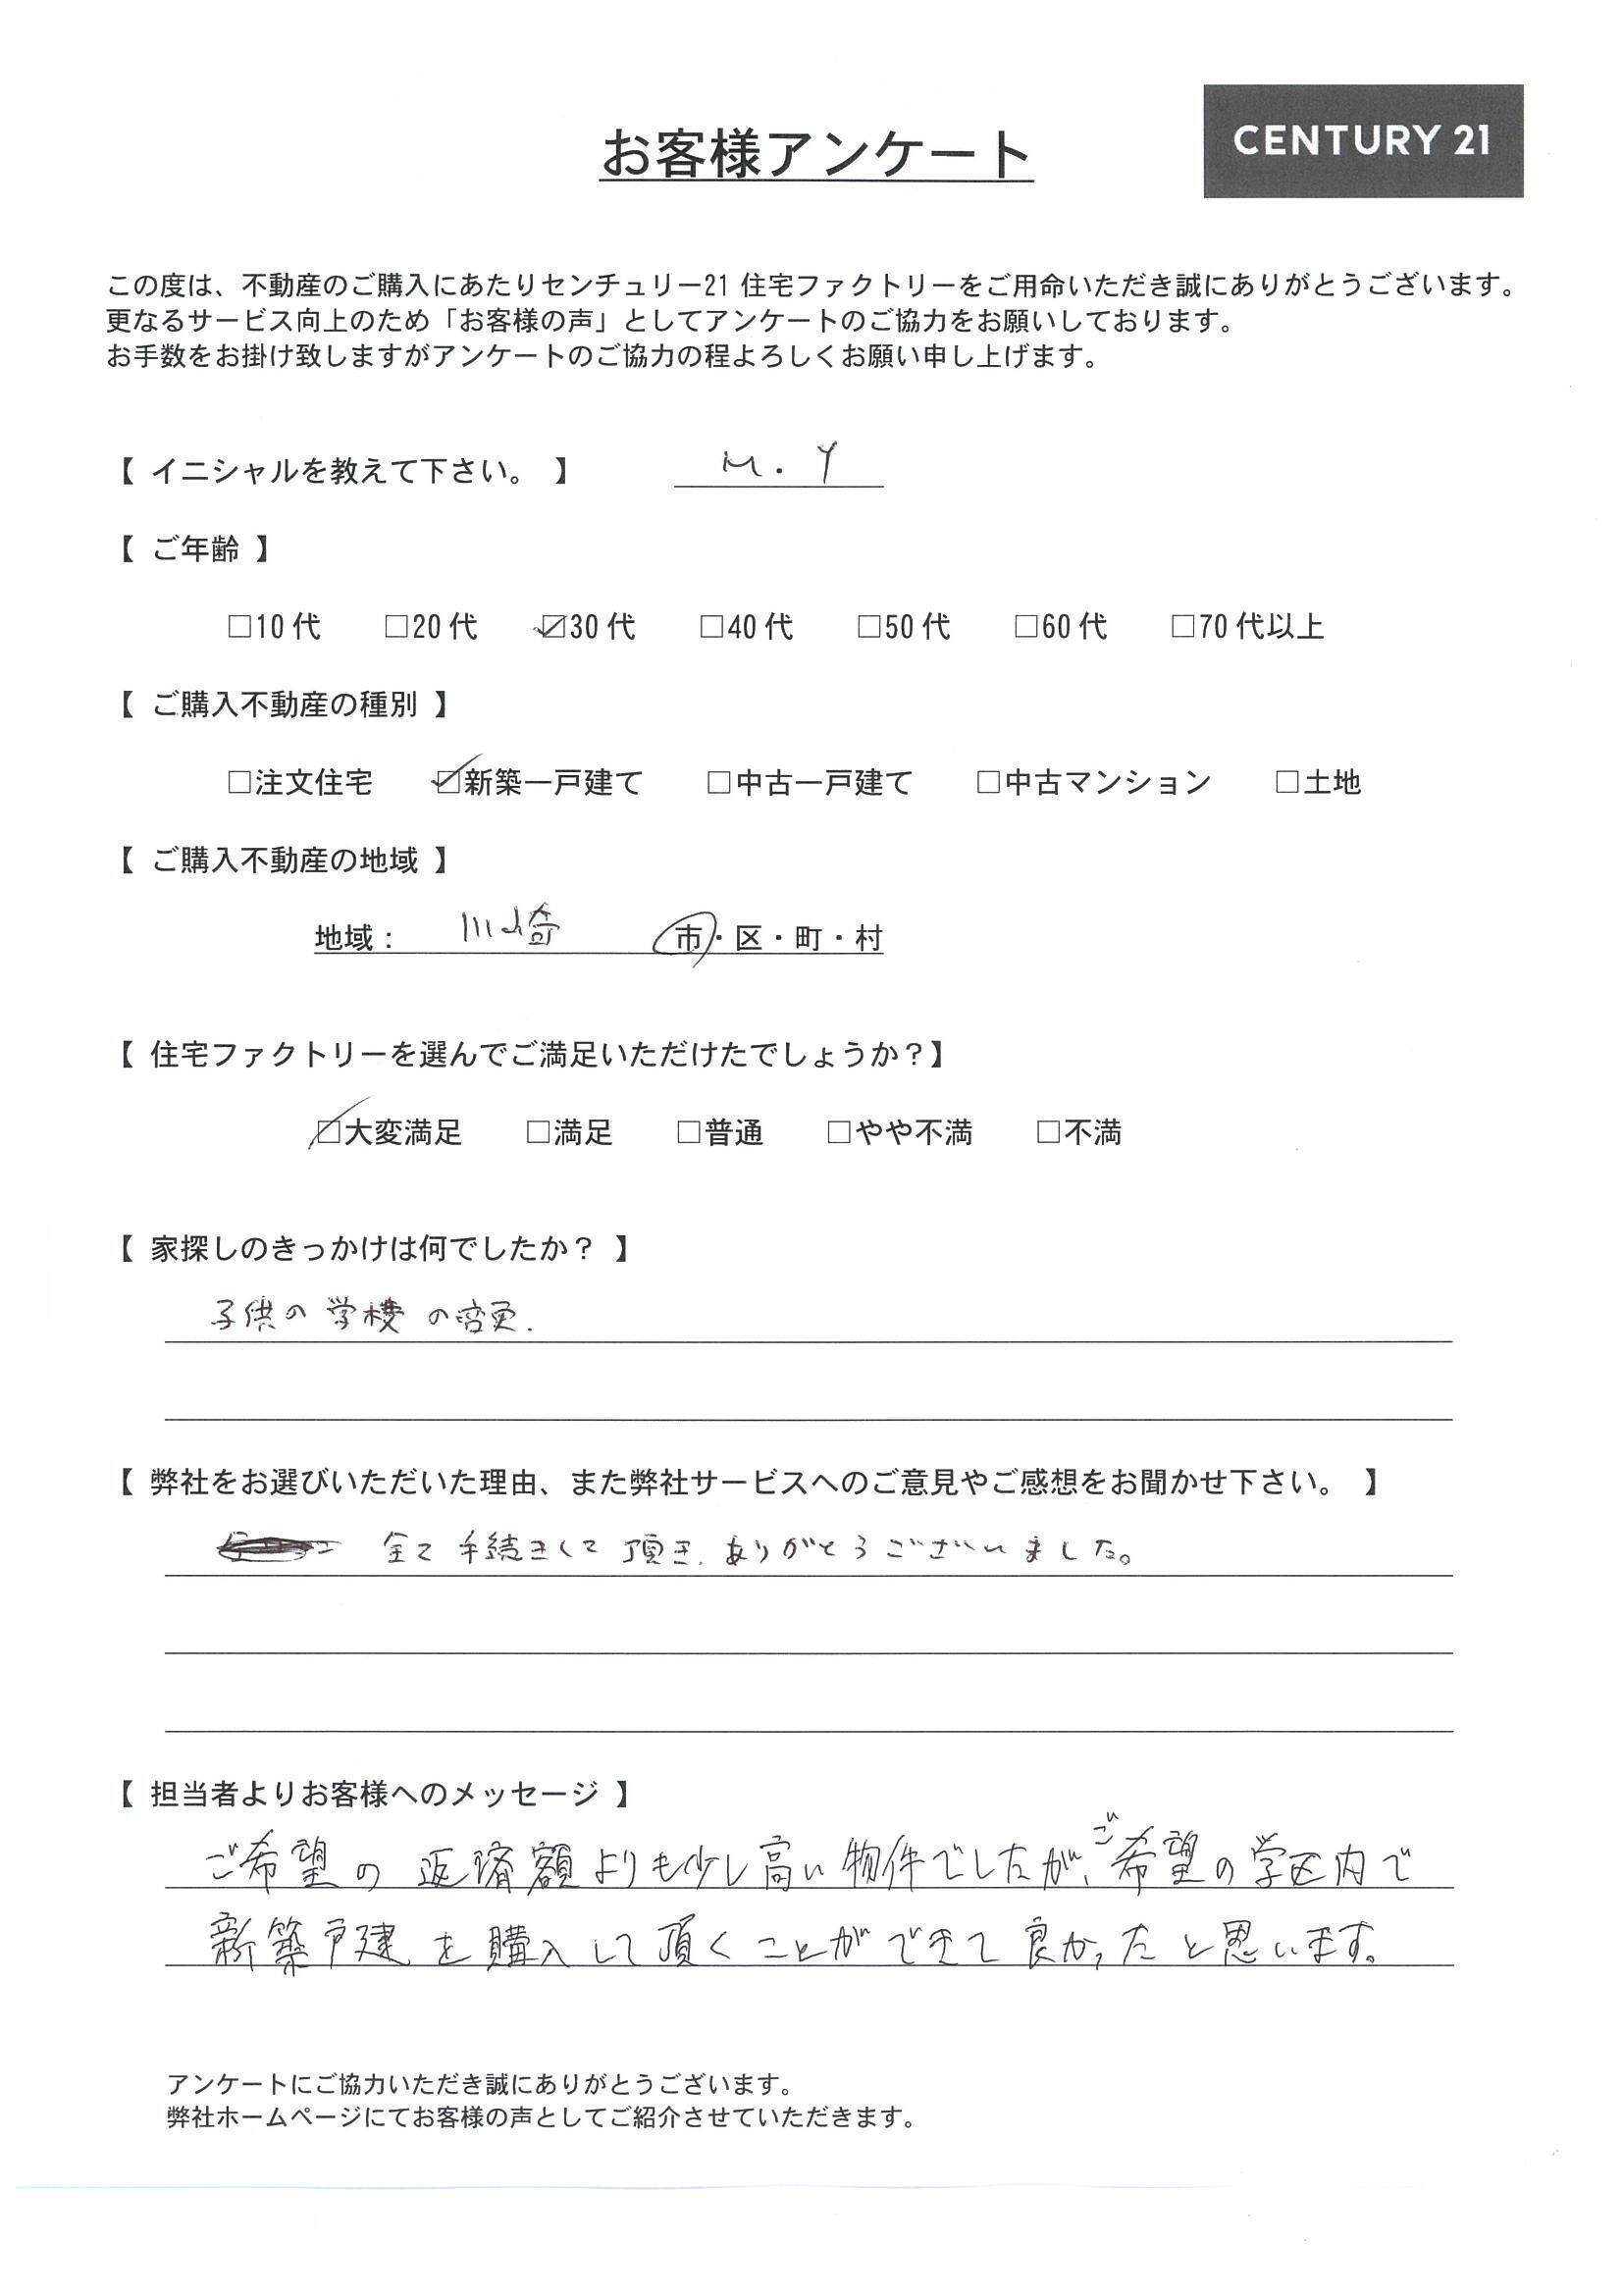 お客様アンケート
CENTURY 21
この度は、不動産のご購入にあたりセンチュリー21 住宅ファクトリーをご用命いただき誠にありがとうございます。
更なるサービス向上のため「お客様の声」としてアンケートのご協力をお願いしております。
お手数をお掛け致しますがアンケートのご協力の程よろしくお願い申し上げます。
【 イニシャルを教えて下さい。 】 M.Y
【 ご年齢 】
□10代 □20代 ☑30代 □40代 □50代 □60代 □70代以上
【 ご購入不動産の種別 】
□注文住宅 ☑新築一戸建て □中古一戸建て □中古マンション □土地
【 ご購入不動産の地域 】
地域： 川崎 市・区・町・村
【 住宅ファクトリーを選んでご満足いただけたでしょうか？】
☑大変満足 □満足 □普通 □やや不満 □不満
【 家探しのきっかけは何でしたか？ 】
子供の学校の変更.
【 弊社をお選びいただいた理由、また弊社サービスへのご意見やご感想をお聞かせ下さい。 】
全て手続きして頂き、ありがとうございました。
【 担当者よりお客様へのメッセージ 】
ご希望の返済額よりも少し高い物件でしたが、ご希望の学区内で
新築戸建を購入して頂くことができて良かったと思います。
アンケートにご協力いただき誠にありがとうございます。
弊社ホームページにてお客様の声としてご紹介させていただきます。